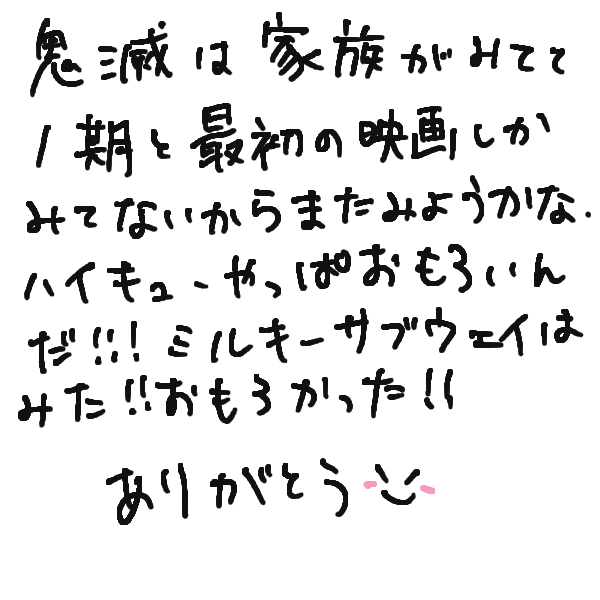 鬼滅は家族がみてて
1期と最初の映画しか
みてないからまたみようかな.
ハイキューやっぱおもろいん
だ!!!ミルキーサブウェイは
みた!!おもろかった!!
ありがとう